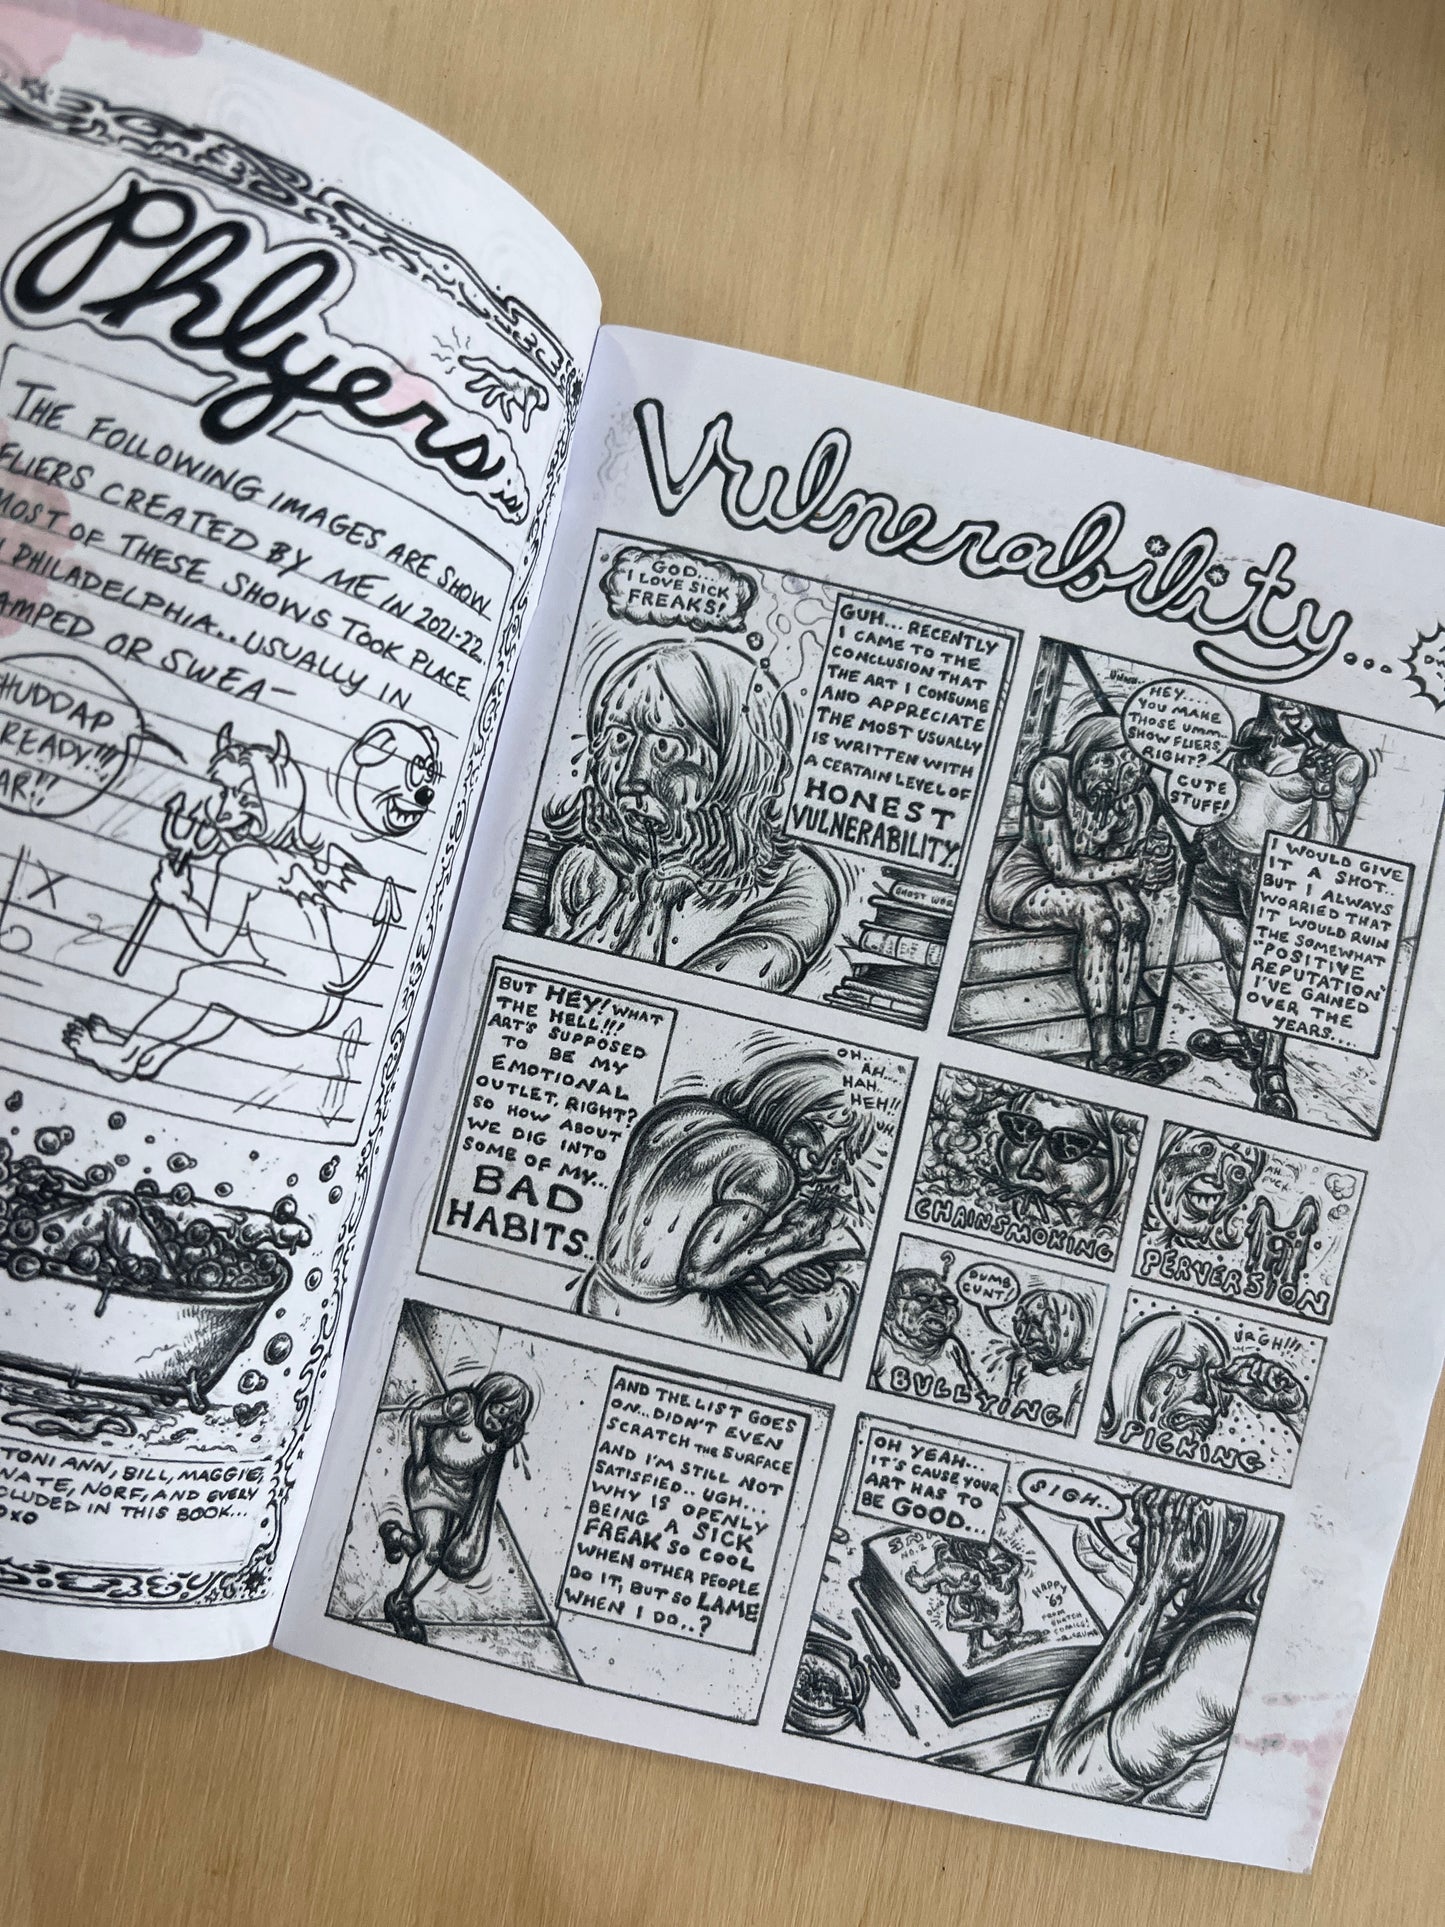 Phlyers
THE FOLLOWING IMAGES ARE SHOW
FLIERS CREATED BY ME IN 2021-22.
MOST OF THESE SHOWS TOOK PLACE
PHILADELPHIA.. USUALLY IN
OR SWEA-
READY!!!
X
TONI ANN, BILL, MAGGIE,
NATE, NORF, AND EVERY
IN THIS BOOK...
Vulnerability...
GOD...
I LOVE SICK
FREAKS!
GUH... RECENTLY
I CAME TO THE
CONCLUSION THAT
THE ART I CONSUME
AND APPRECIATE
THE MOST USUALLY
IS WRITTEN WITH
A CERTAIN LEVEL OF
HONEST
VULNERABILITY.
GHOST WOR
HEY...
YOU MAKE
THOSE UMM..
SHOW FLIERS,
RIGHT?
CUTE
STUFF!
I WOULD GIVE
IT A SHOT..
BUT I ALWAYS
WORRIED THAT
IT WOULD RUIN
THE SOMEWHAT
"POSITIVE
REPUTATION"
I'VE GAINED
OVER THE
YEARS....
BUT HEY! WHAT
THE HELL!!!
ART'S SUPPOSED
TO BE MY
EMOTIONAL
OUTLET, RIGHT?
SO HOW ABOUT
WE DIG INTO
SOME OF MY...
BAD
HABITS..
OH..
AH...
HAH.
HEH!!
UH.
CHAINSMOKING
AH.
FUCK.
PERVERSION
?
DUMB
CUNT!
BULLYING
URGH!!!
PICKING
AND THE LIST GOES
ON.. DIDN'T EVEN
SCRATCH THE SURFACE
AND I'M STILL NOT
SATISFIED.. UGH...
WHY IS OPENLY
BEING A SICK
FREAK SO COOL
WHEN OTHER PEOPLE
DO IT, BUT SO LAME
WHEN I DO..?
OH YEAH...
IT'S CAUSE YOUR
ART HAS TO
BE GOOD...
SIGH..
NO. 2
HAPPY
'69
FROM
SNATCH
COMICS!
R. CRUMB